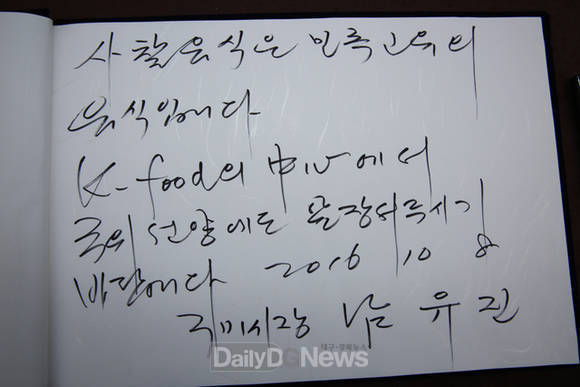 사찰음식은 민족 고유의
음식입니다
K-food의 中心에서
국위선양에도 앞장서주시기
바랍니다 2016 10 8
구미시장 남유진
대구·경북뉴스
DailyDGNews